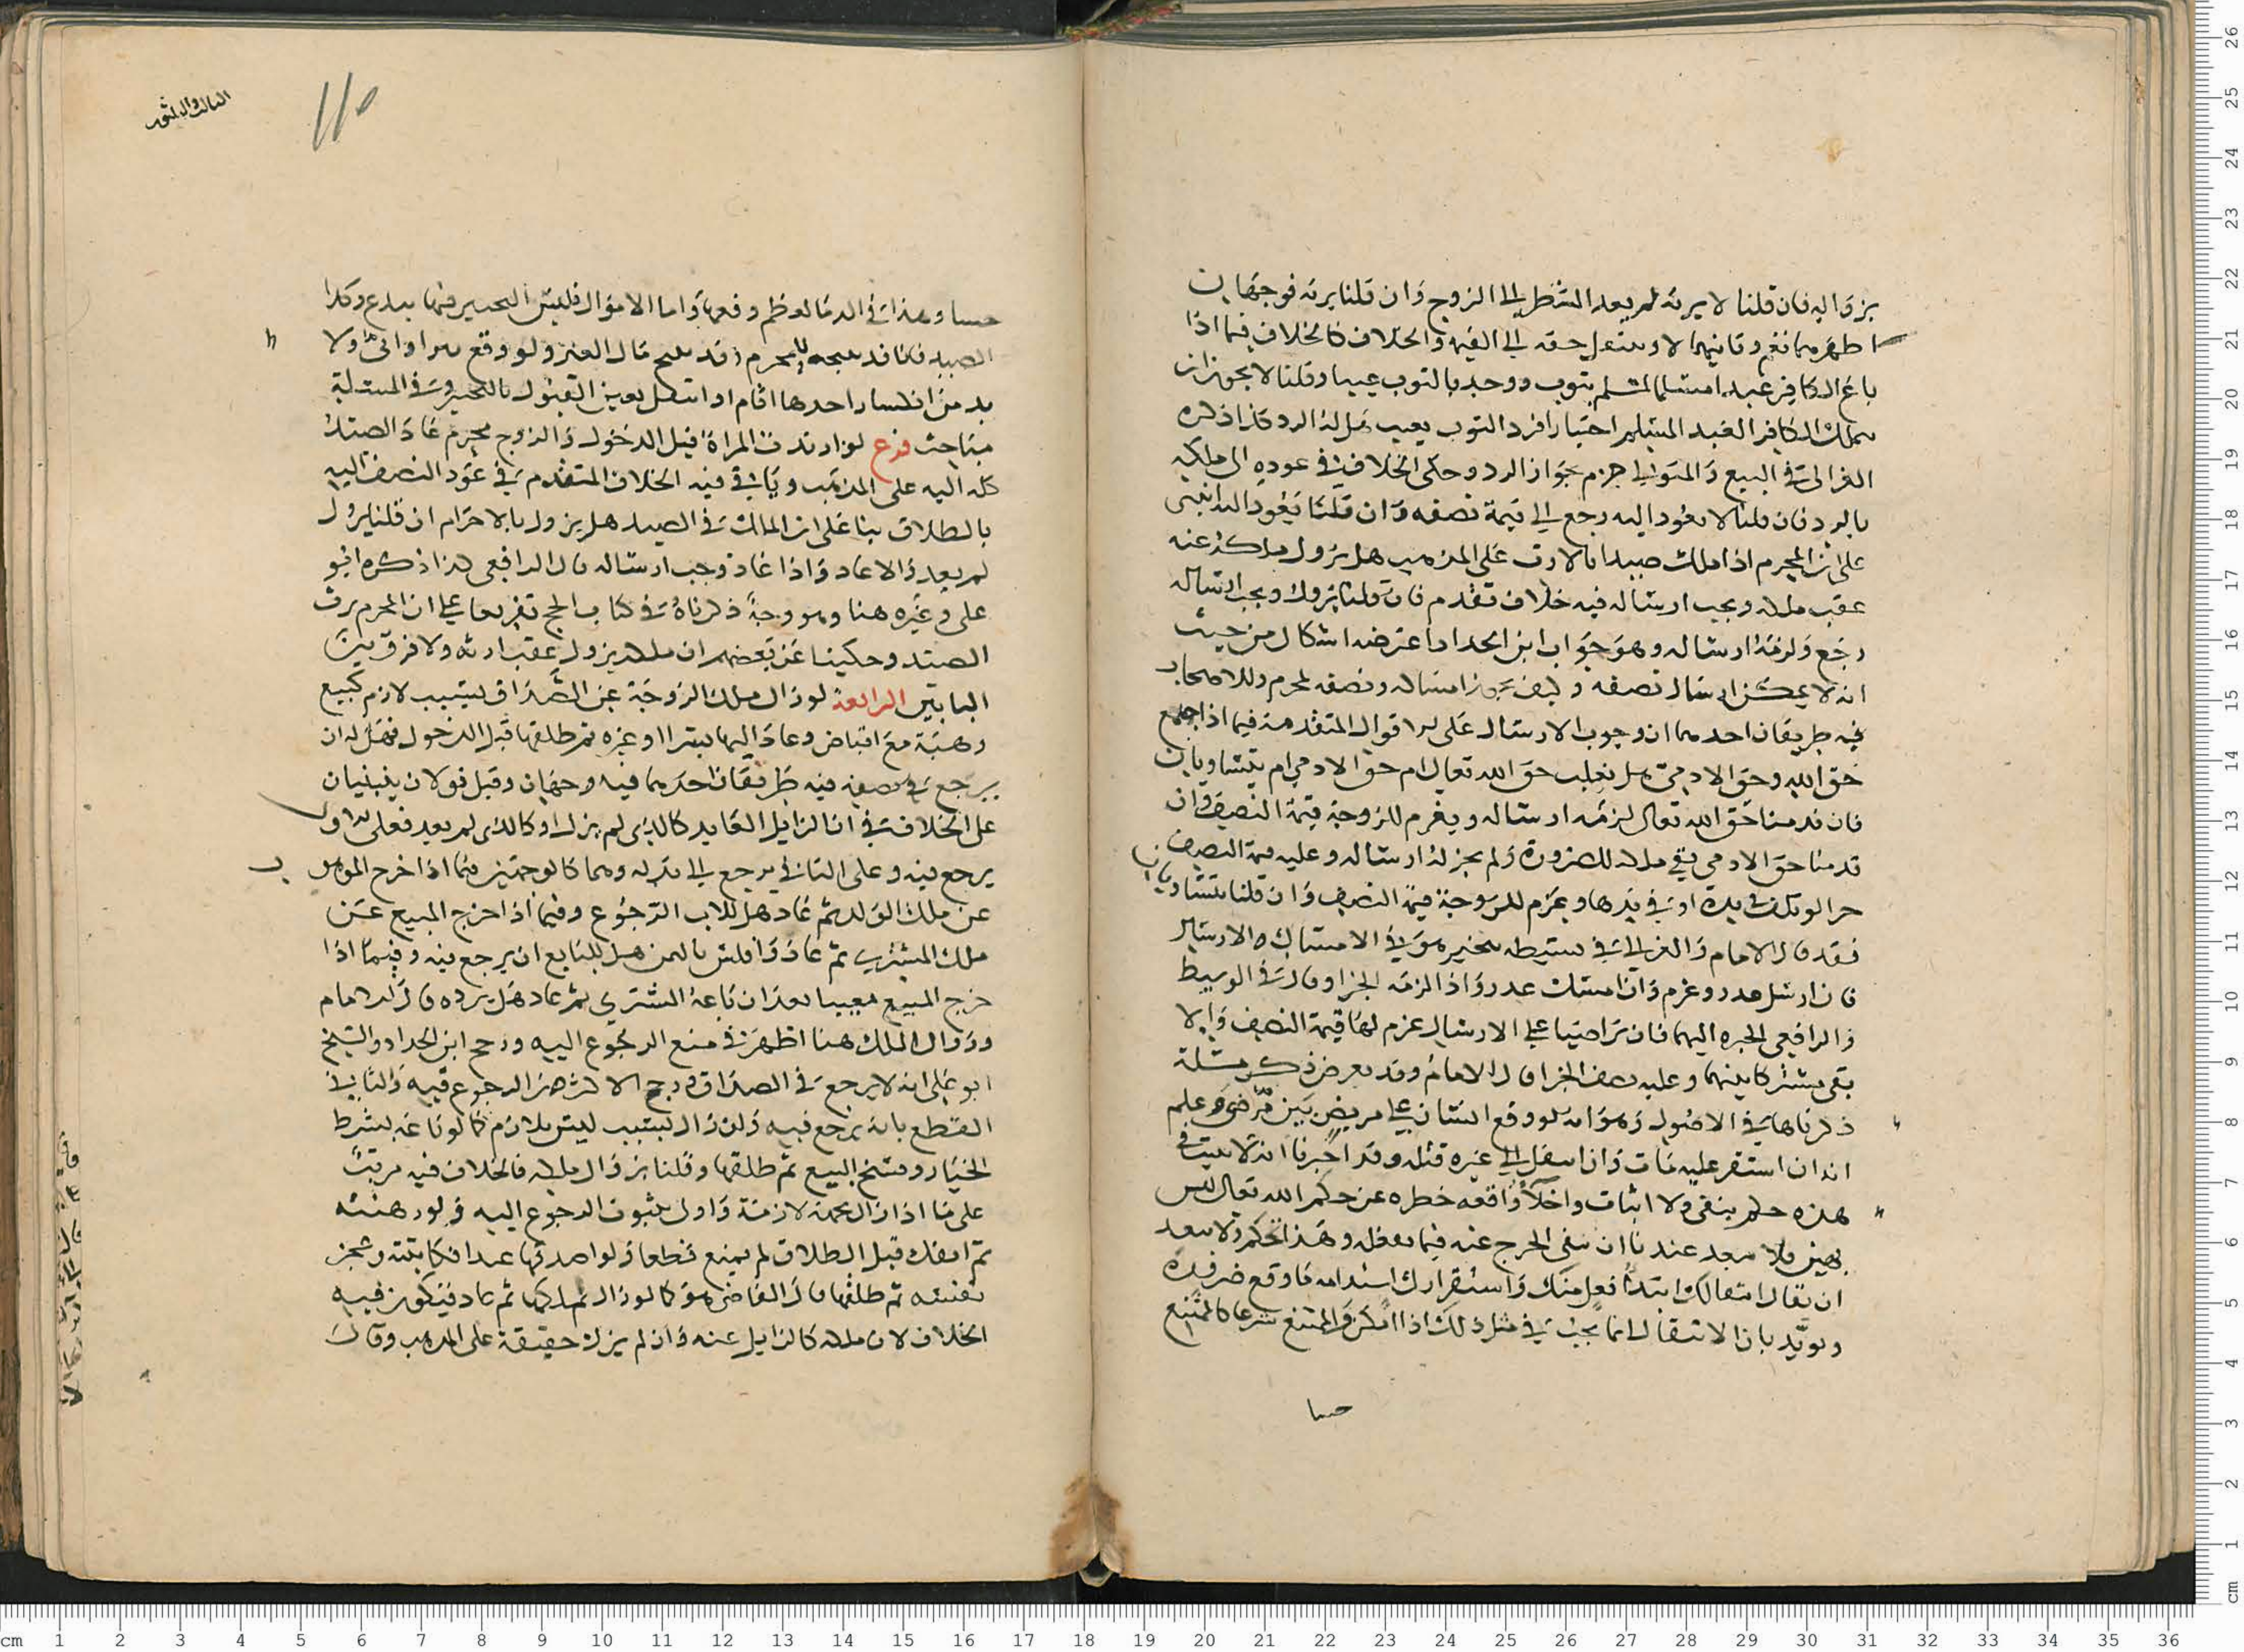 بزواله فان قلنا لا يرثه لم يعد الشطر الى الزوج وان قلنا يرثه فوجهان
اظهرهما نعم وثانيهما لا وينتقل حقه الى القيمة والخلاف كالخلاف فيما اذا
باع الكافر عبدا مسلما لمسلم بثوب ووجد بالثوب عيبا وقلنا لا يجوز ان
يملك الكافر العبد المسلم اختيارا فرد الثوب بعيب هل له الرد كذا ذكره
الغزالى فى البيع والمتولى جزم بجواز الرد وحكى الخلاف فى عوده الى ملكه
بالرد فان قلنا لا يعود اليه رجع الى قيمة نصفه وان قلنا يعود اليه انبنى
على ان المحرم اذا ملك صيدا بالارث على المذهب هل يزول ملكه عنه
عقب ملكه ويجب ارساله فيه خلاف تقدم فان قلنا يزول ويجب ارساله
رجع ولزمه ارساله وهو جواب ابن الحداد اعترضه اشكال من حيث
انه لا يمكن ارسال نصفه وكيف يجوز امساله ونصفه لمحرم وللاصحاب
فيه طريقان احدهما ان وجوب الارسال على الاقوال المتقدمة فيما اذا اجتمع
حق الله وحق الادمى هل يغلب حق الله تعالى ام حق الادمى ام يتساويان
فان قدمنا حق الله تعالى لزمه ارساله ويغرم للزوجة قيمة النصف وان
قدمنا حق الادمى بقى ملكه للضرورة ولم يجز له ارساله وعليه قيمة النصف
حرا لو تلف فى يده او فى يدها ويغرم للزوجة قيمة النصف وان قلنا يتساويان
فقد قال الامام والغزالى فى بسيطه يتخير هو فى الامساك والارسال
فان ارسل عذر وغرم وان امسك عذر واذا لزمه الجزا وقال فى الوسيط
والرافعى الخيره اليهما فان تراضيا على الارسال غرم لها قيمة النصف والا
بقى مشتركا بينهما وعليه نصف الجزا قال الامام وقد تعرض ذكر مسئلة
ذكرناها فى الاصول وهو انه لو وقع انسان على مريض بين مرضى وعلم
انه ان استقر عليه مات وان انتقل الى غيره قتله وقد اخبرنا انه لا يثبت فى
هذه حكم بنفى ولا اثبات واخلا واقعه خطره عن حكم الله تعالى ليس
بهين فلا يبعد عندنا ان ينفى الحرج عنه فيما يفعله وهذا حكم ولا يبعد
ان يقال انتقالك ابتدا فعل منك واستقرارك استدامه ما وقع ضرورة
ويؤيد بان الانتقال انما يجب فى مثل ذلك اذا امكن والممتنع شرعا كالممتنع
حسا
الثالث والثلثون
١١٥
حسا وهذا فى الدما لعظم وقعها واما الاموال فليس التخيير فيها ببدع وكذا
الصيد فانا قد نبيحه للمحرم وقد نبيح مال الغير ولو وقع بين اوانى ولا
بد من انكسار احدها اقام او انتقل يعين القبول بالتخيير وفى المسئلة
مباحث فرع لو ارتدت المراة قبل الدخول والزوج محرم عاد الصيد
كله اليه على المذهب وياتى فيه الخلاف المتقدم فى عود النصف اليه
بالطلاق بنا على ان المالك فى الصيد هل يزول بالاحرام ان قلنا يزول
لم يعد والا عاد واذا عاد وجب ارساله قال الرافعى كذا ذكره ابو
على وغيره هنا وهو وجه ذكرناه فى كتاب الحج تفريعا على ان المحرم يرث
الصيد وحكينا عن بعضهم ان ملكه يزول عقب ارثه ولا فرق بين
البابين الرابعة لو زال ملك الزوجة عن الصداق بسبب لازم كبيع
وهبة مع اقباض وعاد اليها بشرا او غيره ثم طلقها قبل الدخول فهل له ان
يرجع فى نصفه فيه طريقان احدهما فيه وجهان وقيل قولان ينبنيان
على الخلاف فى ان الزايل العايد كالذى لم يزل او كالذى لم يعد فعلى الاول
يرجع فيه وعلى الثانى يرجع الى بدله وهما كالوجهين فيما اذا خرج الموهوب
عن ملك الولد ثم عاد هل للاب الرجوع وفيما اذا خرج المبيع عن
ملك المشترى ثم عاد وافلس بالثمن هل للبايع ان يرجع فيه وفيما اذا
خرج المبيع معيبا بعد ان باعه المشترى ثم عاد هل يرده قال الامام
وزوال الملك هنا اظهر فى منع الرجوع اليه ورجح ابن الحداد والشيخ
ابو على انه لا يرجع فى الصداق ورجح الاكثرون الرجوع فيه والثانى
القطع بانه يرجع فيه ولو زال بسبب ليس بلازم كما لو باعه بشرط
الخيار وفسخ البيع ثم طلقها وقلنا بزوال ملكه فالخلاف فيه مرتب
على ما اذا زال بجهة لازمة واولى بثبوت الرجوع اليه ولو رهنته
ثم انفك قبل الطلاق لم يمنع قطعا ولو اصدقها عبدا فكاتبته وعجز
نفسه ثم طلقها قال القاضى هو كما لو زال ملكها ثم عاد فيكون فيه
الخلاف لان ملكه كالزايل عنه وان لم يزل حقيقة على المذهب وقال